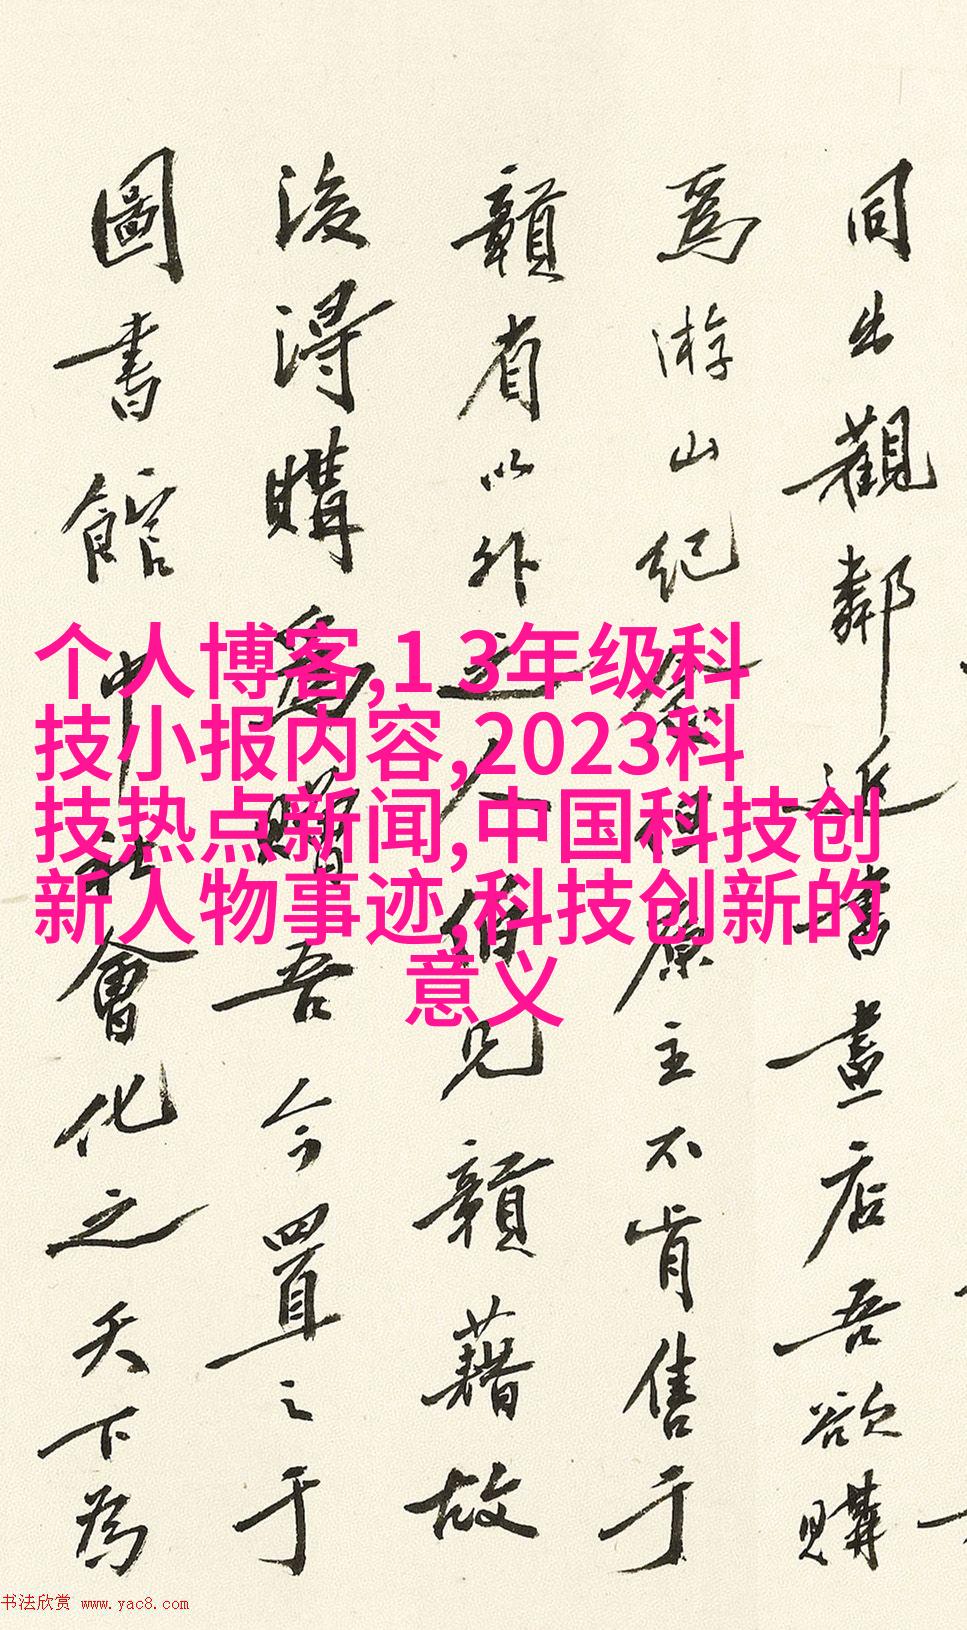 同出觀鄰近書畫店吾欲購
爲游山紀念主不肯售于
贛省以外之人見贛藉故
後得購爲贈吾今置之于
圖書館中社會化之天下為
个人博客,1 3年级科
技小报内容,2023科
技热点新闻,中国科技创
新人物事迹,科技创新的
意义
书法欣赏 www.yac8.com